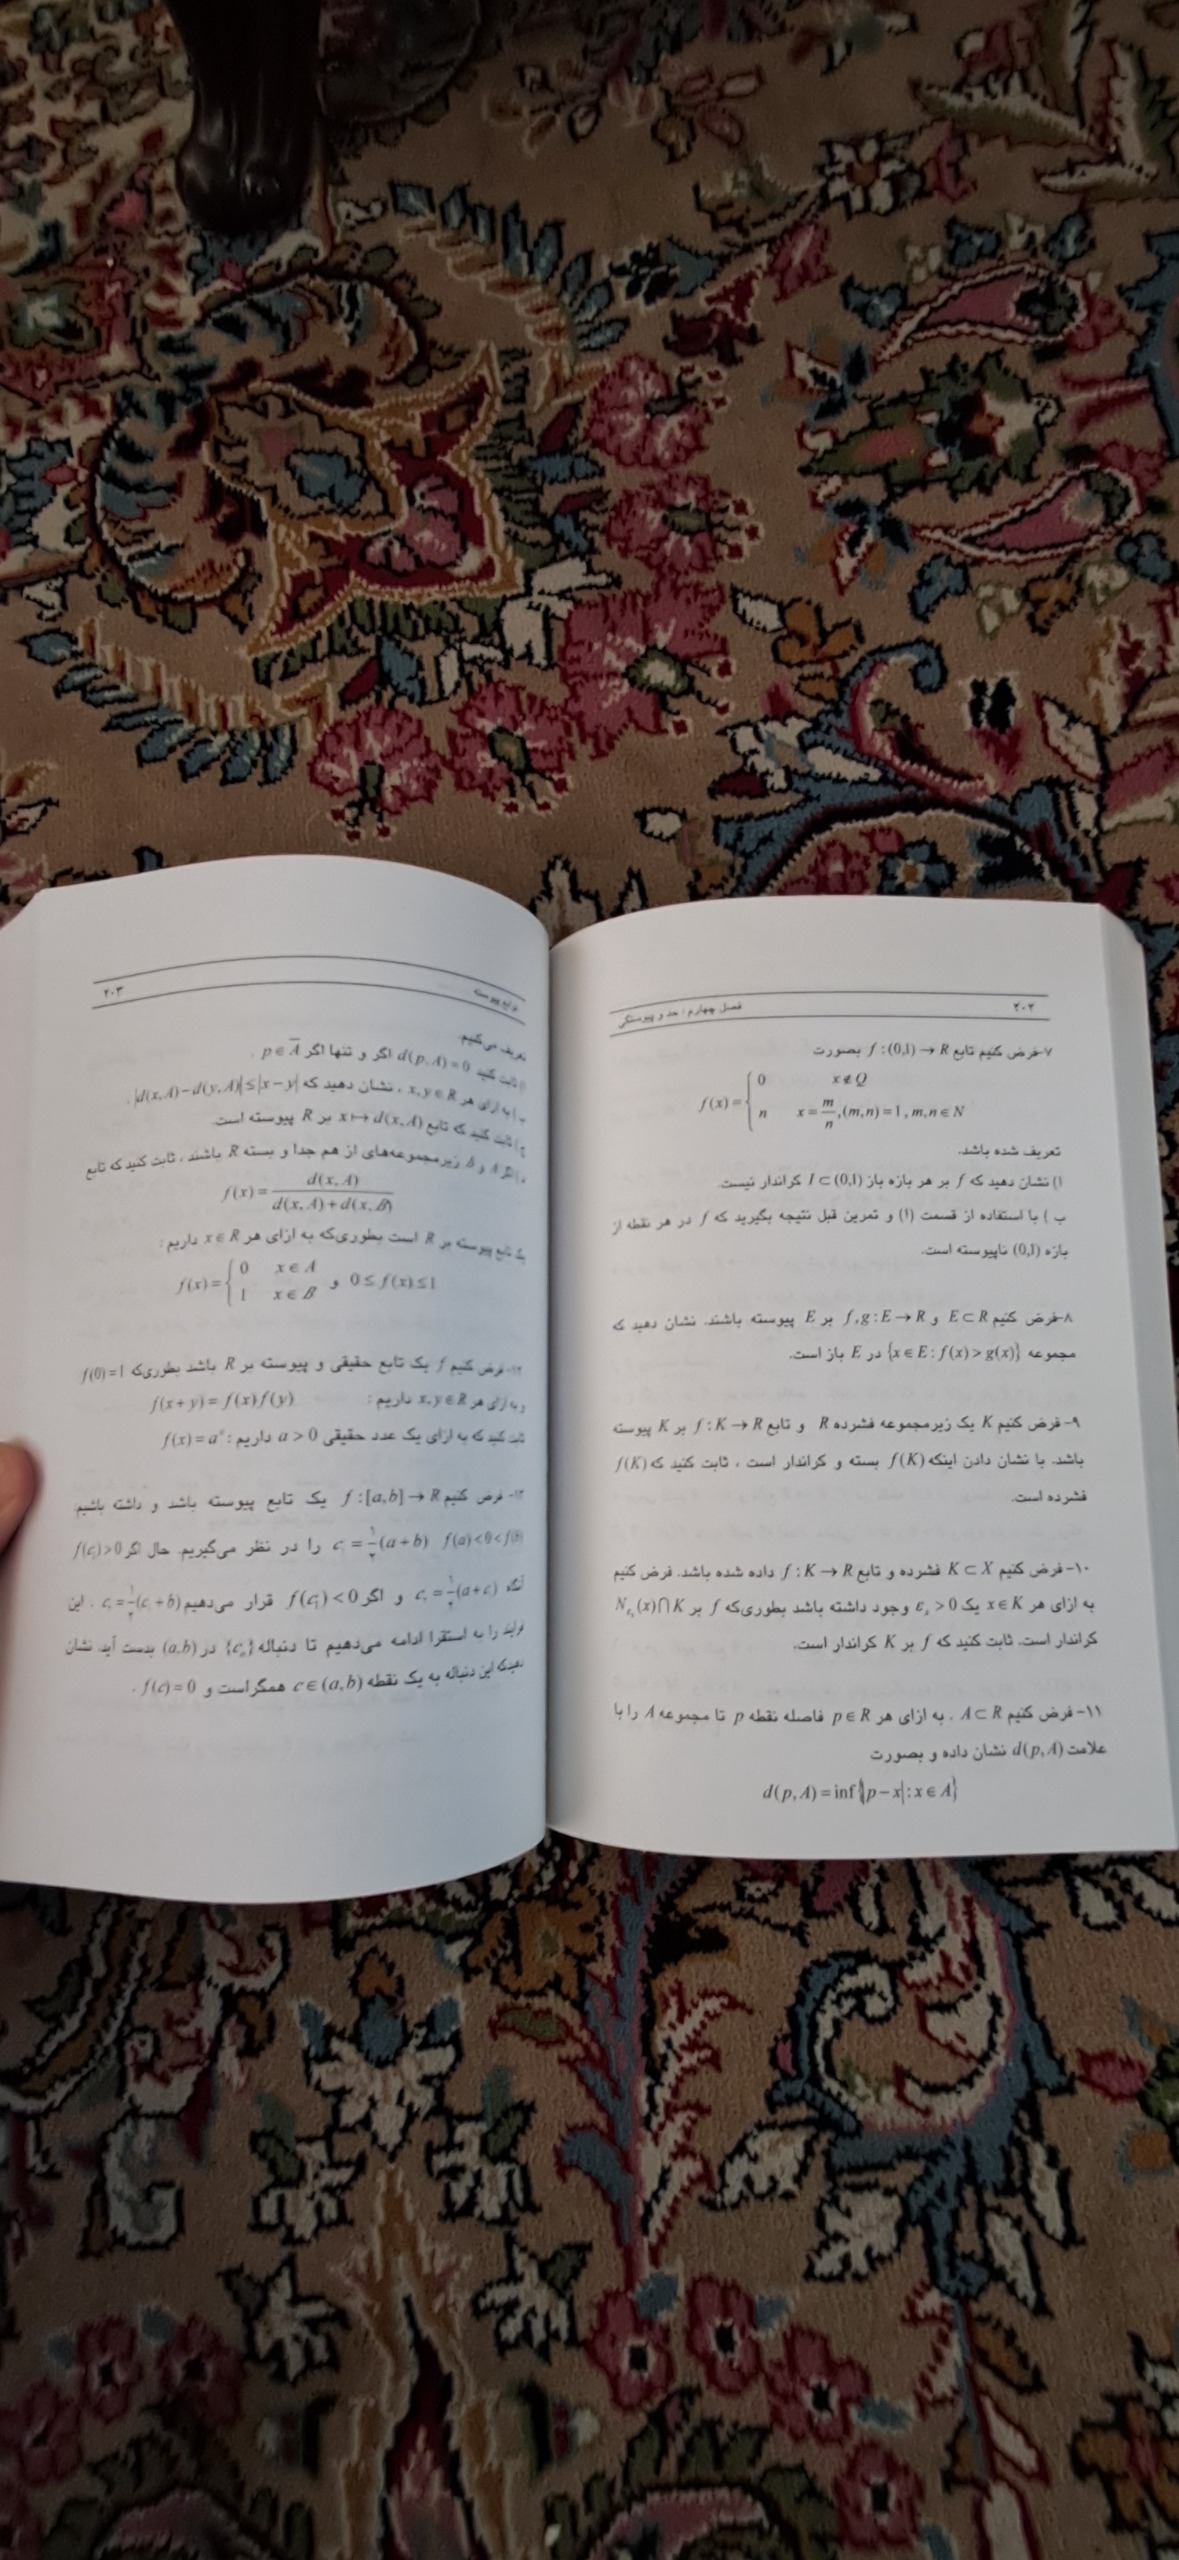 ۲۰۲ فصل چهارم : حد و پیوستگی
۷-فرض کنیم تابع f : (0,1) → R بصورت
f(x) = { 0 x ∉ Q
n x = m/n , (m,n) = 1 , m,n ∈ N
تعریف شده باشد.
ا) نشان دهید که f بر هر بازه باز I ⊂ (0,1) کراندار نیست.
ب ) با استفاده از قسمت (ا) و تمرین قبل نتیجه بگیرید که f در هر نقطه از
بازه (0,1) ناپیوسته است.
۸-فرض کنیم E ⊂ R و f,g : E → R بر E پیوسته باشند. نشان دهید که
مجموعه {x ∈ E : f(x) > g(x)} در E باز است.
۹- فرض کنیم K یک زیرمجموعه فشرده R و تابع f : K → R بر K پیوسته
باشد. با نشان دادن اینکه f(K) بسته و کراندار است ، ثابت کنید که f(K)
فشرده است.
۱۰-فرض کنیم K ⊂ X فشرده و تابع f : K → R داده شده باشد. فرض کنیم
به ازای هر x ∈ K یک εₓ > 0 وجود داشته باشد بطوری‌که f بر N_εₓ(x) ∩ K
کراندار است. ثابت کنید که f بر K کراندار است.
۱۱- فرض کنیم A ⊂ R . به ازای هر p ∈ R فاصله نقطه p تا مجموعه A را با
علامت d(p,A) نشان داده و بصورت
d(p,A) = inf{|p − x| : x ∈ A}
توابع پیوسته ۲۰۳
تعریف می‌کنیم.
ا) ثابت کنید d(p,A) = 0 اگر و تنها اگر p ∈ A̅ .
ب ) به ازای هر x,y ∈ R ، نشان دهید که |d(x,A) − d(y,A)| ≤ |x − y| .
ج ) ثابت کنید که تابع x ↦ d(x,A) بر R پیوسته است.
د ) اگر A و B زیرمجموعه‌های از هم جدا و بسته R باشند ، ثابت کنید که تابع
f(x) = d(x,A) / (d(x,A) + d(x,B))
یک تابع پیوسته بر R است بطوری‌که به ازای هر x ∈ R داریم :
f(x) = { 0 x ∈ A
1 x ∈ B و 0 ≤ f(x) ≤ 1
۱۲-فرض کنیم f یک تابع حقیقی و پیوسته بر R باشد بطوری‌که f(0) = 1
و به ازای هر x,y ∈ R داریم : f(x + y) = f(x)f(y)
ثابت کنید که به ازای یک عدد حقیقی a > 0 داریم : f(x) = aˣ
۱۳- فرض کنیم f : [a,b] → R یک تابع پیوسته باشد و داشته باشیم
f(a) < 0 < f(b) c₁ = ۱/۲ (a + b) را در نظر می‌گیریم. حال اگر f(c₁) > 0
آنگاه c₂ = ۱/۲ (a + c₁) و اگر f(c₁) < 0 قرار می‌دهیم c₂ = ۱/۲ (c₁ + b) . این
فرایند را به استقرا ادامه می‌دهیم تا دنباله {cₙ} در (a,b) بدست آید. نشان
دهید که این دنباله به یک نقطه c ∈ (a,b) همگراست و f(c) = 0 .